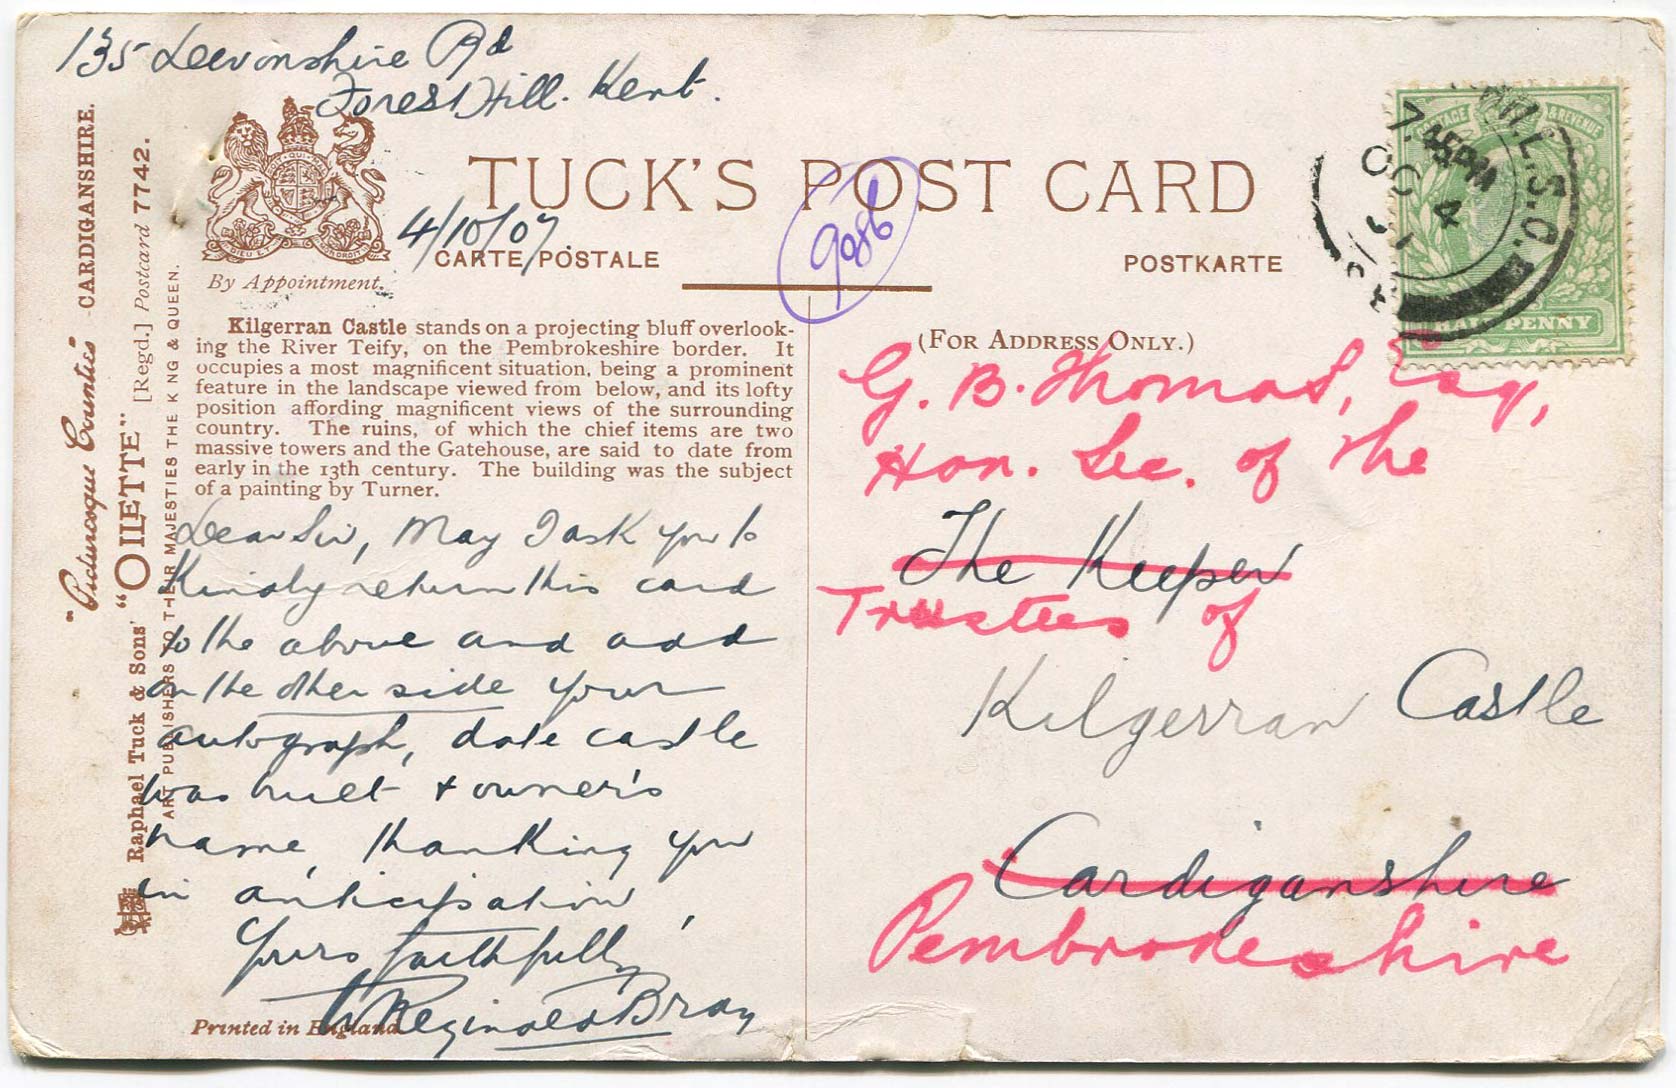 135 Devonshire Rd
Forest Hill. Kent.
TUCK'S POST CARD
4/10/07
9086
CARTE POSTALE
POSTKARTE
By Appointment.
"Picturesque Counties" CARDIGANSHIRE.
Raphael Tuck & Sons' "OILETTE" [Regd.] Postcard 7742.
ART PUBLISHERS TO THEIR MAJESTIES THE KING & QUEEN.
Kilgerran Castle stands on a projecting bluff overlook-
ing the River Teify, on the Pembrokeshire border. It
occupies a most magnificent situation, being a prominent
feature in the landscape viewed from below, and its lofty
position affording magnificent views of the surrounding
country. The ruins, of which the chief items are two
massive towers and the Gatehouse, are said to date from
early in the 13th century. The building was the subject
of a painting by Turner.
Dear Sir, May I ask you to
kindly return this card
to the above and add
on the other side your
autograph, date castle
was built & owner's
name, thanking you
in anticipation,
Yours faithfully
W Reginald Bray
Printed in England
(FOR ADDRESS ONLY.)
G. B. Thomas, Esq,
Hon. Sec. of the
The Keeper
Trustees of
Kilgerran Castle
Cardiganshire
Pembrokeshire
POSTAGE & REVENUE
HALF PENNY
7.45PM
OC 4
R.S.O.